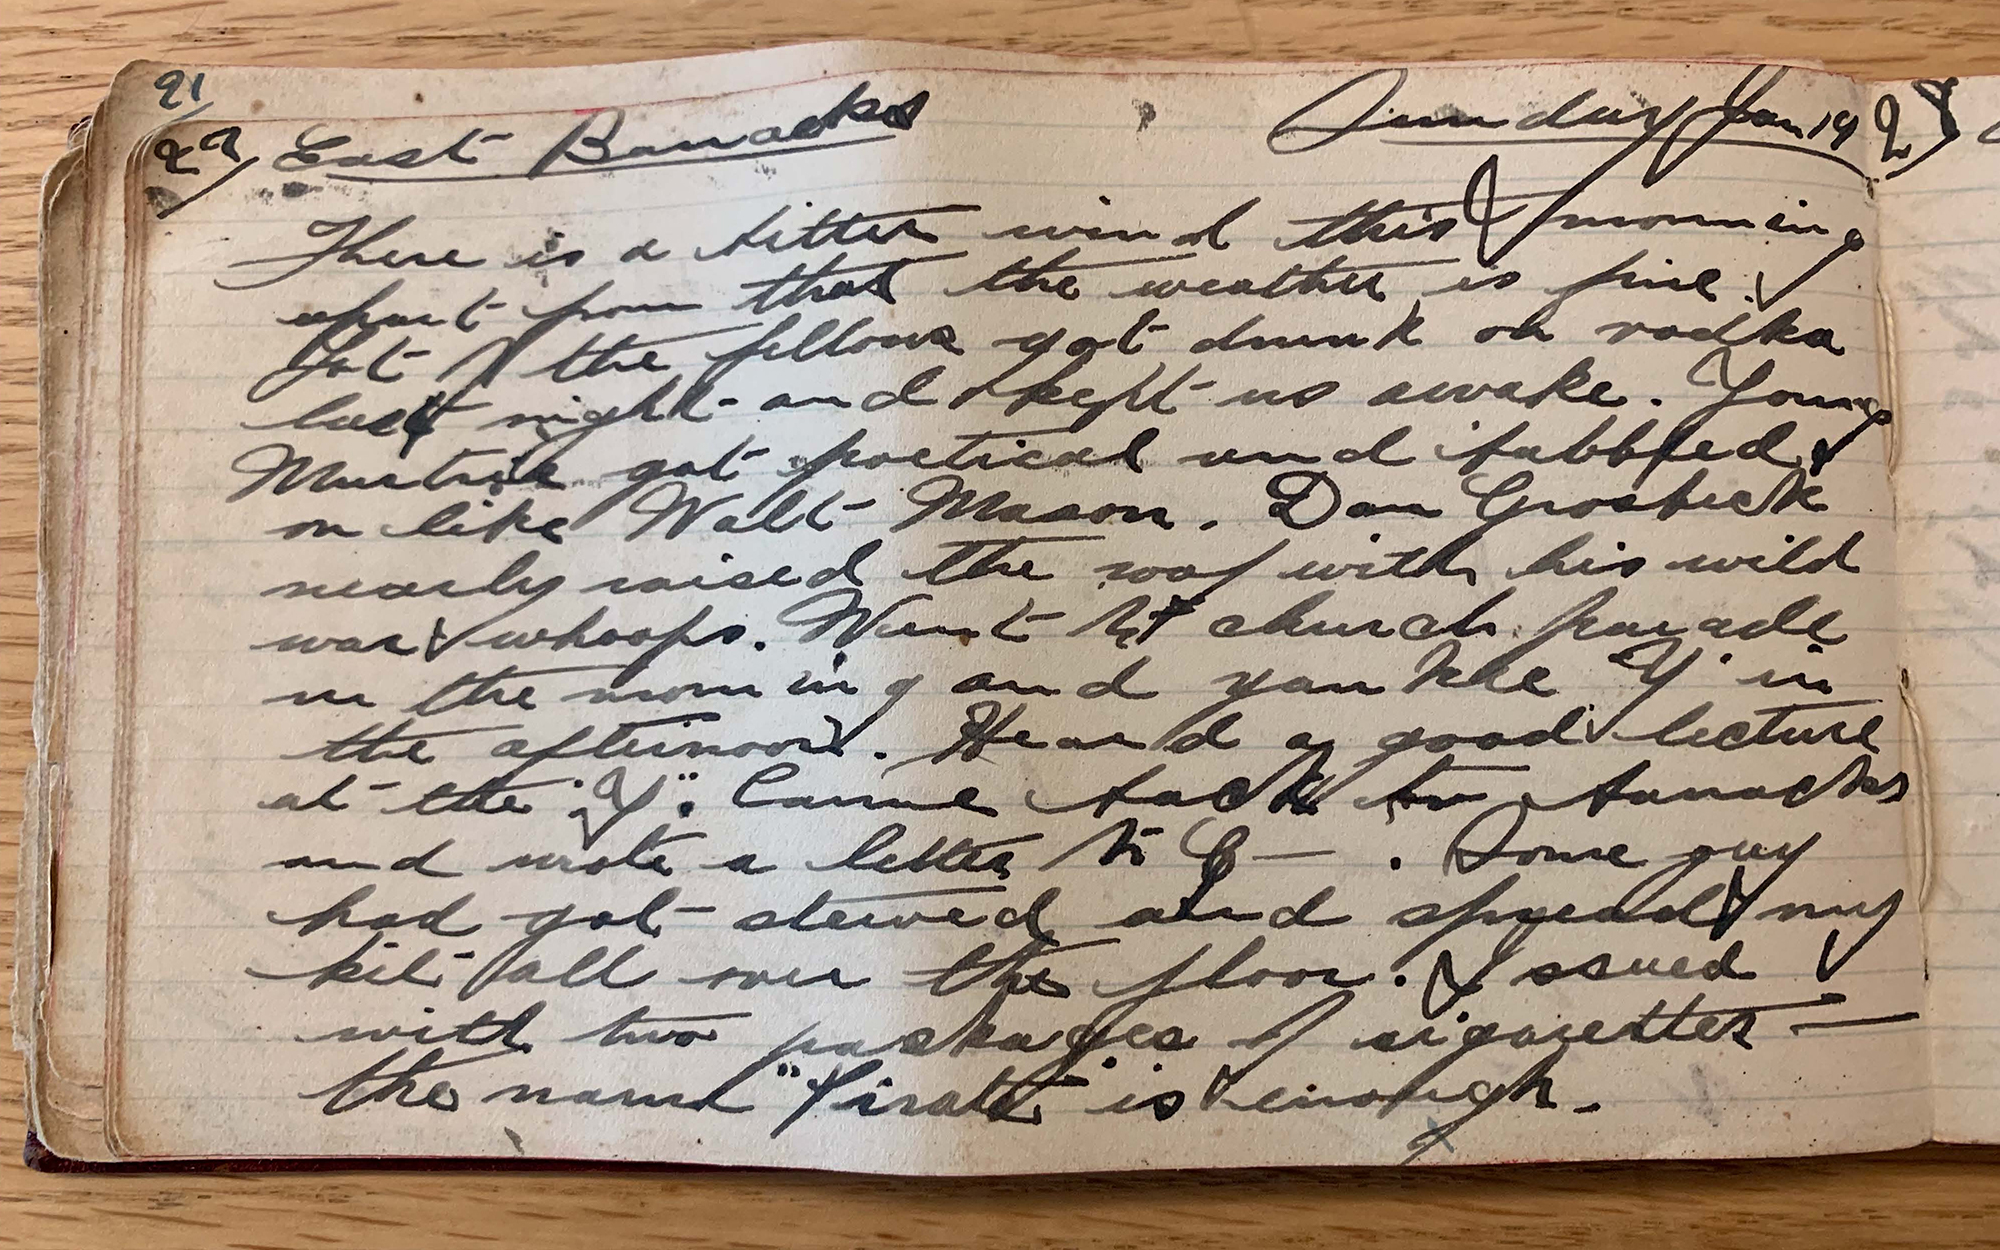 21
27 East Barracks Sunday Jan 19
There is a bitter wind this morning
apart from that the weather is fine.
Lot of the fellows got drunk on vodka
last night and kept us awake. Young
got poetical and babbled
on like Walt Mason. Dan Grosbeck
nearly raised the roof with his wild
war whoops. Went to church parade
in the morning and yankee Y in
the afternoon. Heard a good lecture
at the "Y". Came back to barracks
and wrote a letter to — . Some guy
had got stewed and spread my
kit all over the floor. Issued
with two packages of cigarettes —
the name "Pirate" is enough.